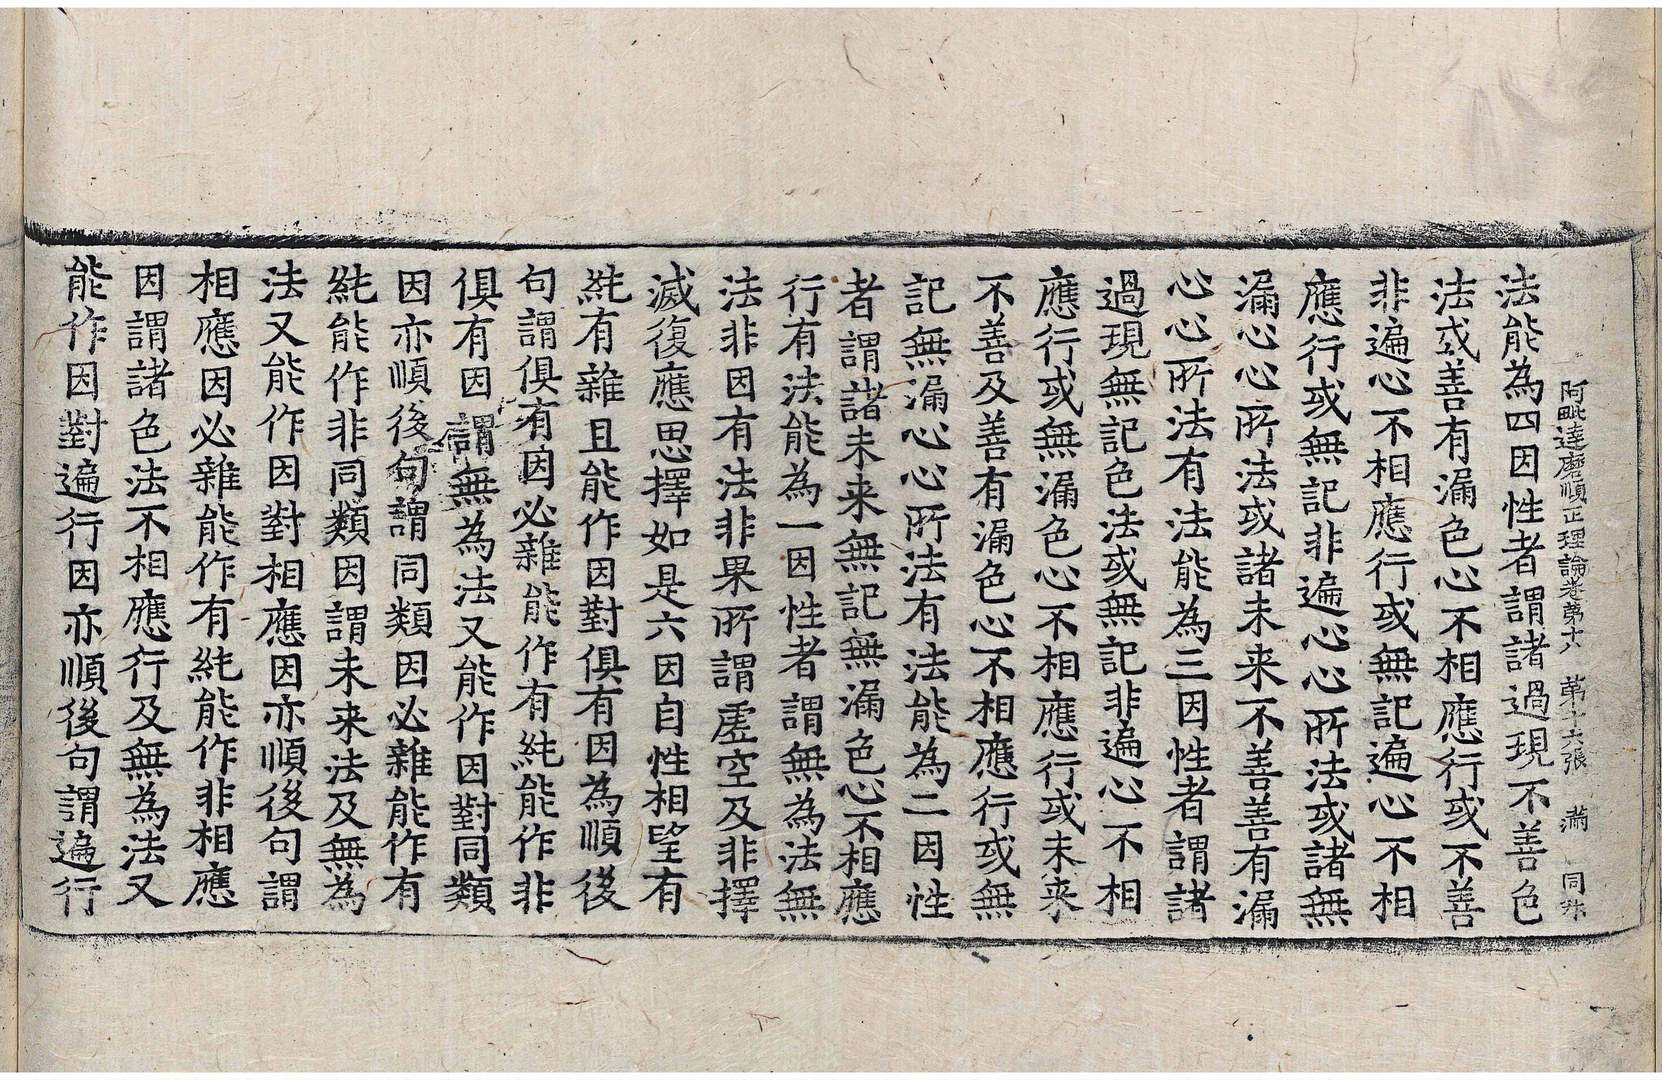 阿毗達磨順正理論卷第十六 第十六張 滿 同殊
法能為四因性者謂諸過現不善色
法或善有漏色心不相應行或不善
非遍心不相應行或無記遍心不相
應行或無記非遍心心所法或諸無
漏心心所法或諸未来不善善有漏
心心所法有法能為三因性者謂諸
過現無記色法或無記非遍心不相
應行或無漏色心不相應行或未来
不善及善有漏色心不相應行或無
記無漏心心所法有法能為二因性
者謂諸未来無記無漏色心不相應
行有法能為一因性者謂無為法無
法非因有法非果所謂虛空及非擇
滅復應思擇如是六因自性相望有
純有雜且能作因對俱有因為順後
句謂俱有因必雜能作有純能作非
俱有因謂無為法又能作因對同類
因亦順後句謂同類因必雜能作有
純能作非同類因謂未来法及無為
法又能作因對相應因亦順後句謂
相應因必雜能作有純能作非相應
因謂諸色法不相應行及無為法又
能作因對遍行因亦順後句謂遍行